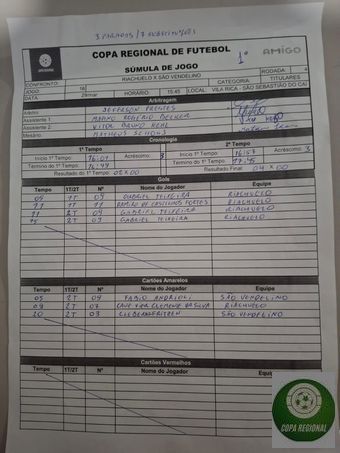 3 PARADAS / 7 SUBSTITUIÇÕES
COPA REGIONAL DE FUTEBOL
1º
AMIGO
SÚMULA DE JOGO
COPA REGIONAL
CONFRONTO: RIACHUELO X SÃO VENDELINO RODADA: 4
JOGO: 16 CATEGORIA: TITULARES
DATA: 29/mar HORÁRIO: 15:45 LOCAL: VILA RICA - SÃO SEBASTIÃO DO CAÍ
Arbitragem
Árbitro: JEFFERSON PRESTES
Assistente 1: MARKO ROGÉRIO BECKER
Assistente 2: VITOR BRUNO KEHL
Mesário: MATHEUS
Cronologia
1º Tempo 2º Tempo
Início 1º Tempo 16:01 Acréscimo: 3 Início 2º Tempo 16:57 Acréscimo: 3
Término do 1º Tempo 16:49 Término do 2º Tempo 17:45
Resultado do 1º Tempo: 02 X 00 Resultado Final: 04 X 00
Gols
Tempo 1T/2T Nº Nome do Jogador Equipe
1T 09 GABRIEL TEIXEIRA RIACHUELO
1T 11 FORTES RIACHUELO
2T 09 GABRIEL TEIXEIRA RIACHUELO
15 2T 09 GABRIEL TEIXEIRA RIACHUELO
Cartões Amarelos
Tempo 1T/2T Nº Nome do Jogador Equipe
05 2T 09 FABIO ANDRIOLI SÃO VENDELINO
2T 07 CLEMENTE DA SILVA RIACHUELO
20 2T 08 SÃO VENDELINO
Cartões Vermelhos
Tempo 1T/2T Nº Nome do Jogador
COPA REGIONAL